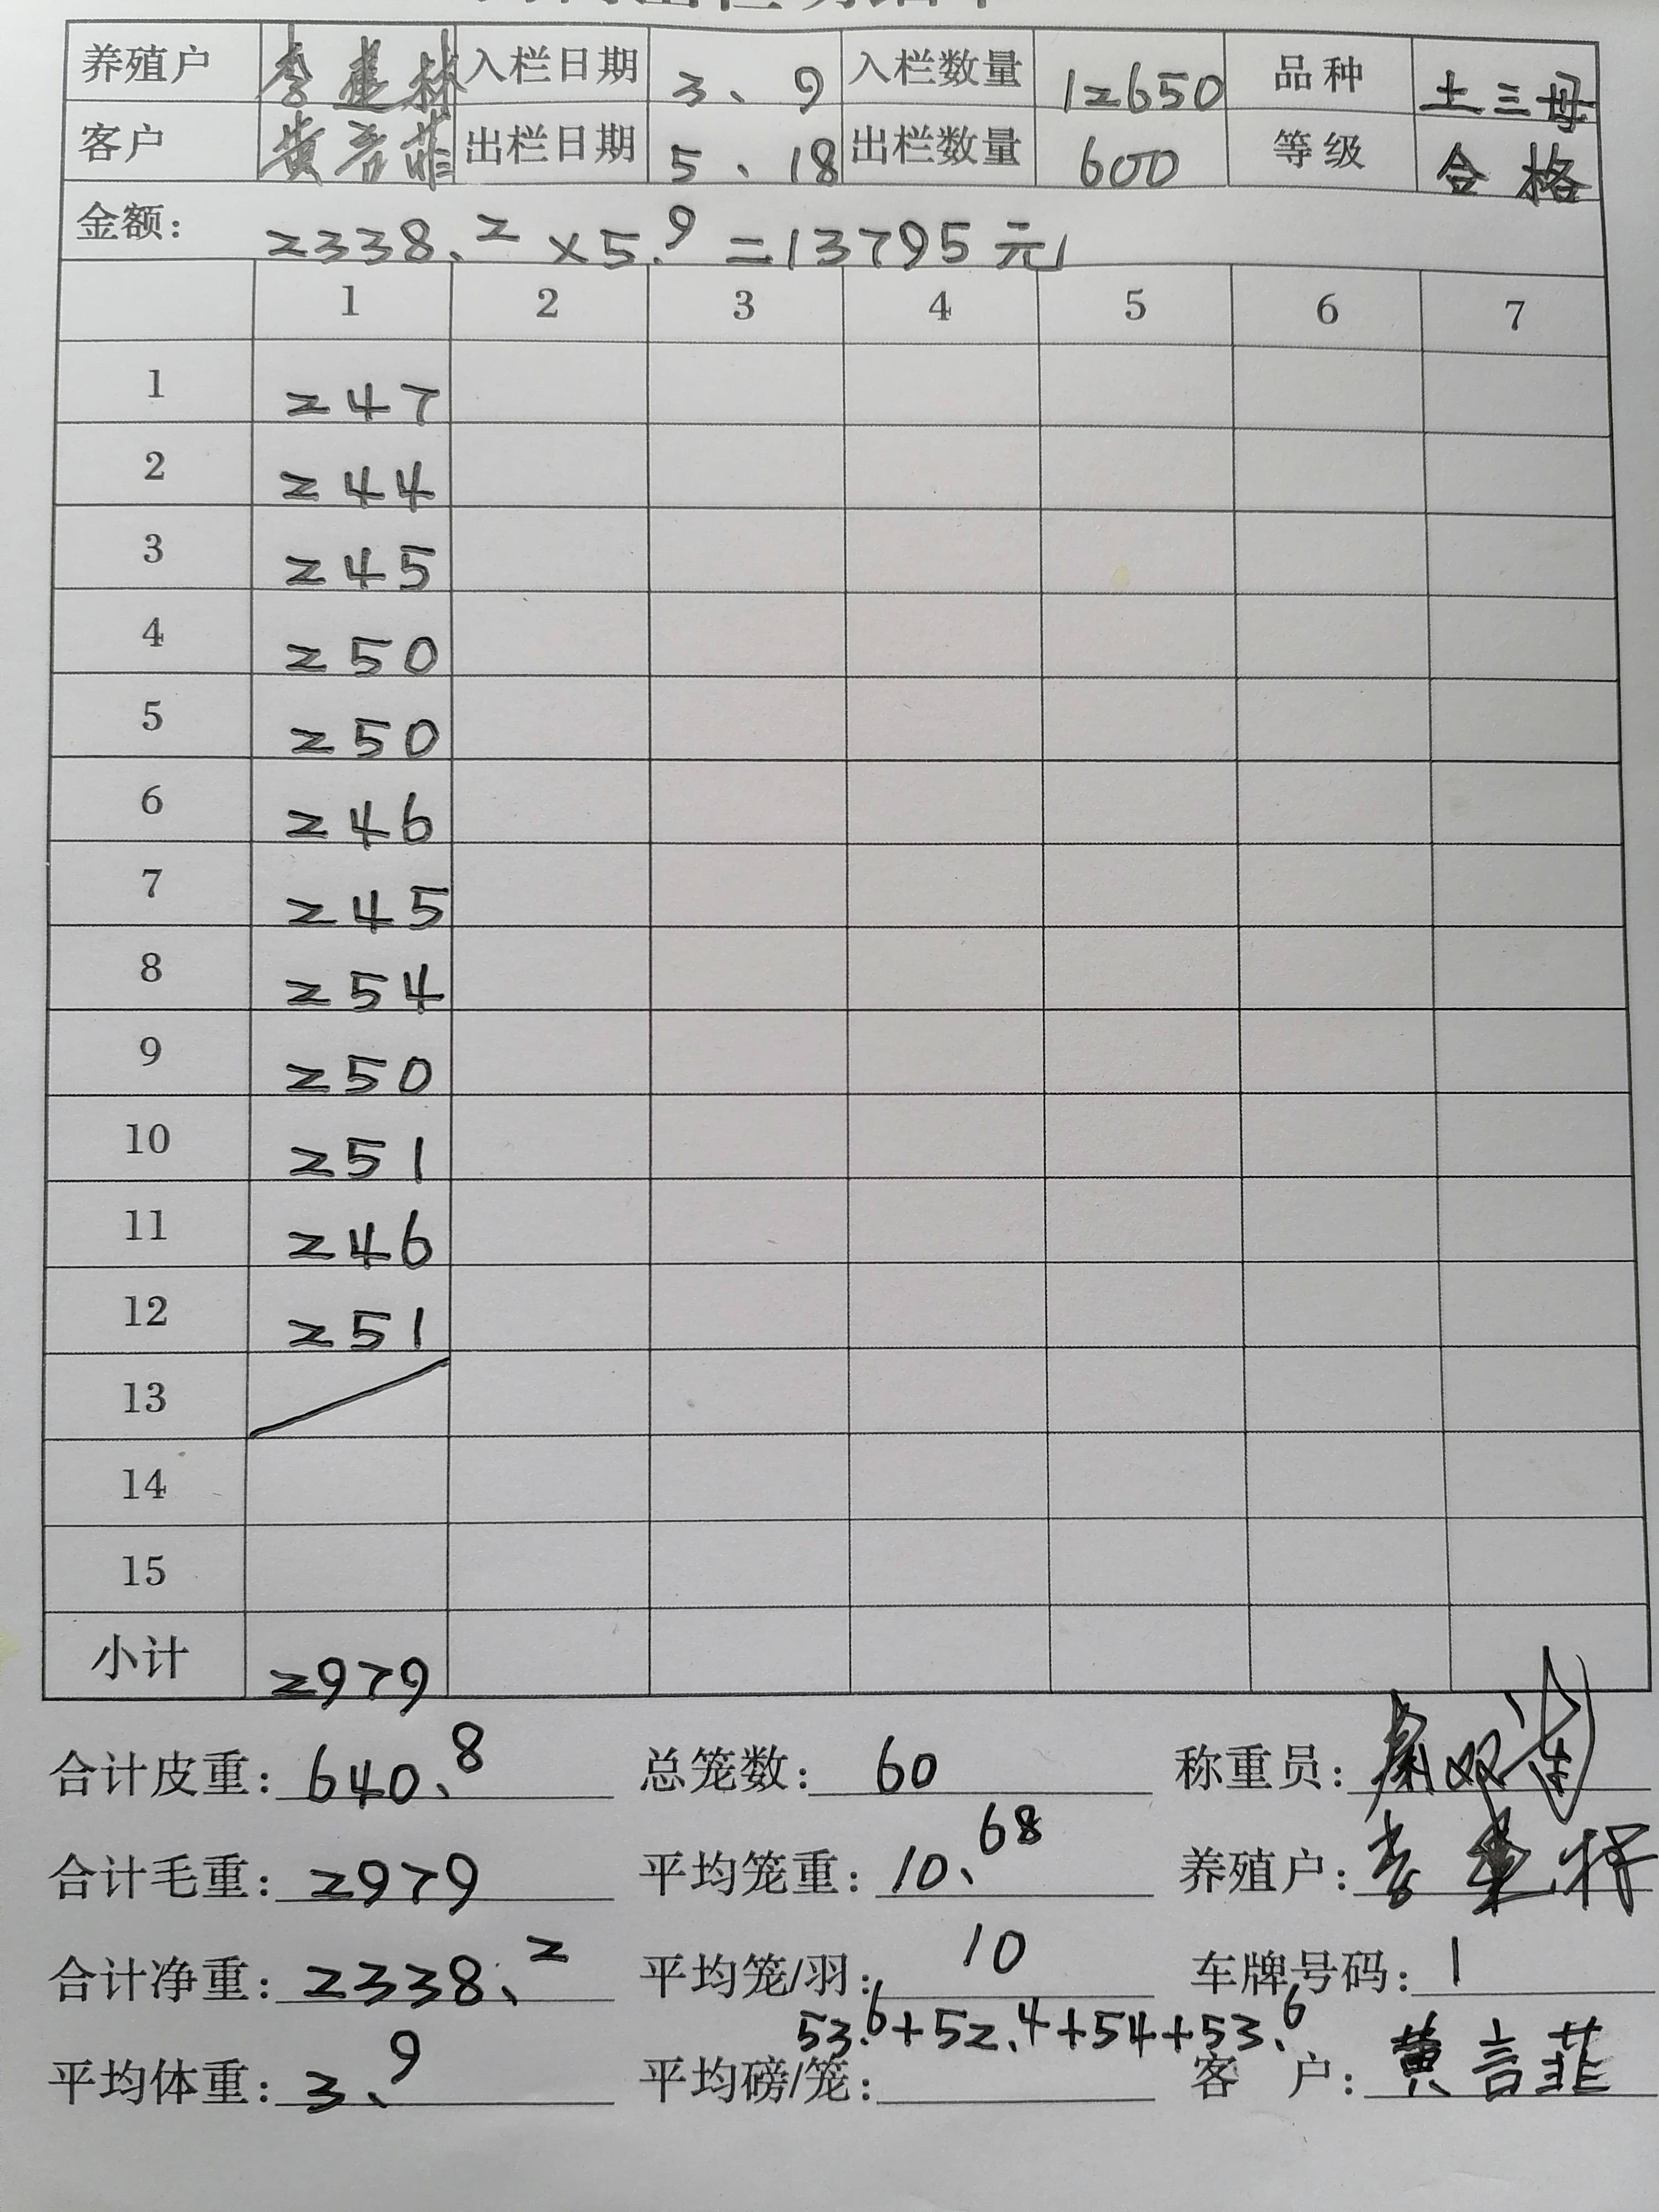 养殖户 李建林 入栏日期 3、9 入栏数量 12650 品种 土三母
客户 黄言菲 出栏日期 5、18 出栏数量 600 等级 合格
金额: 2338.2 ×5.9 =13795元
1 2 3 4 5 6 7
1 247
2 244
3 245
4 250
5 250
6 246
7 245
8 254
9 250
10 251
11 246
12 251
13
14
15
小计 2979
合计皮重: 640、8 总笼数: 60 称重员:
合计毛重: 2979 平均笼重: 10、68 养殖户: 李建林
合计净重: 2338、2 平均笼/羽: 10 车牌号码: 1
53.6+52.4+54+53.6
平均体重: 3、9 平均磅/笼: 客 户: 黄言菲